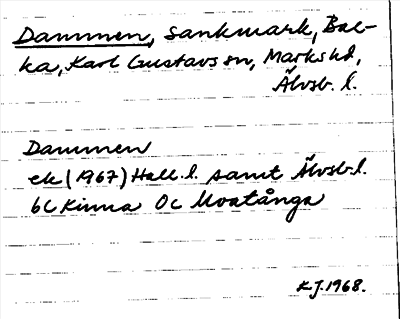 Dammen, sankmark, Bac-
ka, Karl Gustavs sn, Marks hd,
Älvsb. l.
Dammen
ek (1967) Hall. l. samt Älvsb. l.
6C Kinna 0c
K.J. 1968.